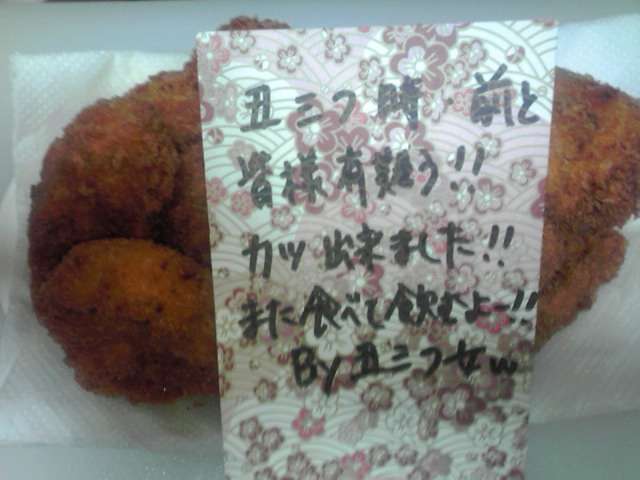 丑三つ時 前と
皆様有難う!!
カツ出来ました!!
また食べて飲むよー!!
By丑三つ女w